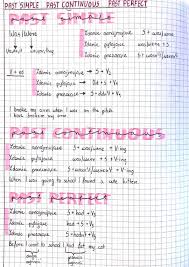 PAST SIMPLE PAST CONTINUOUS PAST PERFECT
past simple
Was/Were
Zdanie oznajmujące → S +
Zdanie pytające → was/were + S
Zdanie przeczenie → S +
V + ed
Zdanie oznajmujące → S + V2
Zdanie pytające → Did + S + V
Zdanie przeczenie → S + didn't + V
I broke my arm when I was on the pitch
I have broken my arm.
PAST CONTINUOUS
Zdanie oznajmujące S + was/were + Ving
Zdanie pytające was/were + S + Ving
Zdanie przeczenie S + wasn't/weren't + Ving
When I was going to school I found a cute kitten.
PAST PERFECT
Zdanie oznajmujące S + had + V3
Zdanie pytające Had + S + V3
Zdanie przeczenie S + hadn't + V3
Before I went to school I had fed my cat